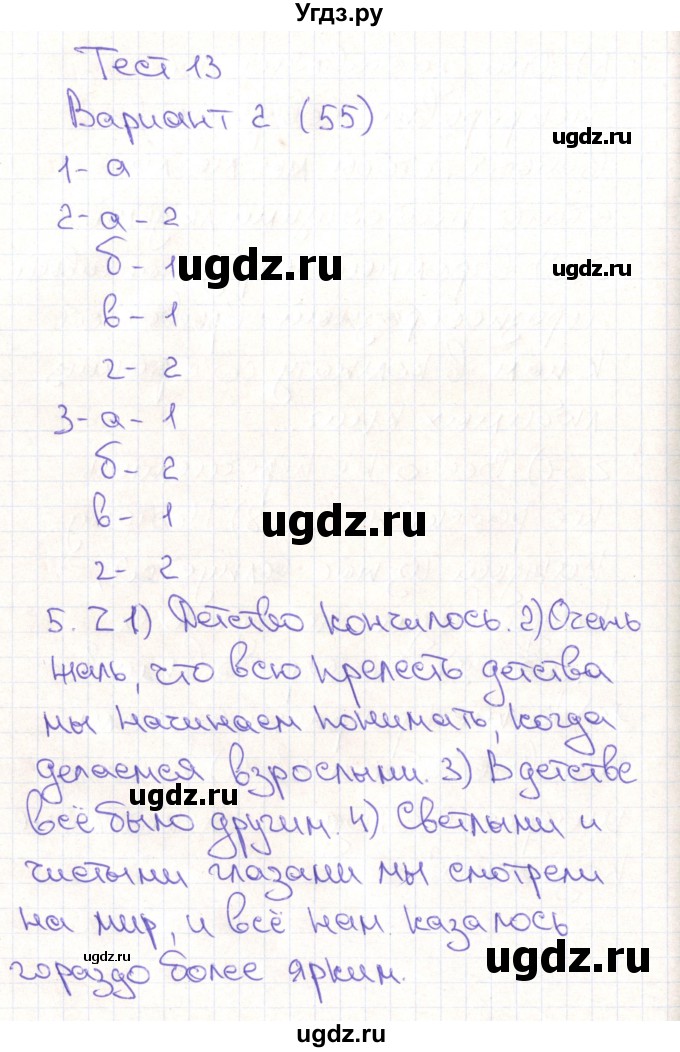 Угдз.ру
Тест 13
Вариант 2 (55)
ugdz.ru
1- а
2- а - 2
б - 1
ugdz.ru
ugdz.ru
в - 1
г - 2
3- а - 1
б - 2
в - 1
ugdz.ru
г - 2
5. Z 1) Детство кончилось. 2) Очень
жаль, что всю прелесть детства
мы начинаем понимать, когда
делаемся взрослыми. 3) В детстве
ugdz.ru
всё было другим. 4) Светлыми и
чистыми глазами мы смотрели
на мир, и всё нам казалось
ugdz.ru
гораздо более ярким.
ugdz.ru
ugdz.ru